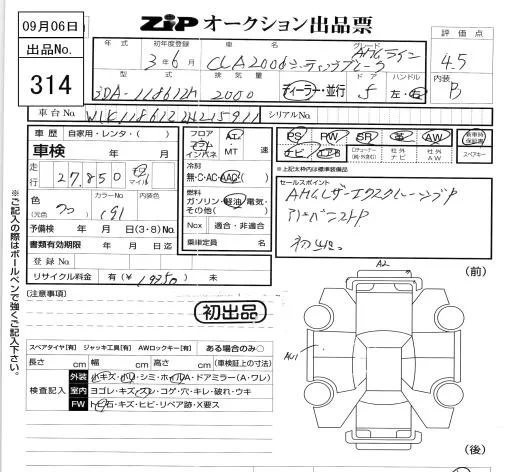 09月06日
ZIP オークション出品票
出品No.
314
年式 初年度登録 車名 グレード 評価点
3年6月 CLA200d シューティングブレーク AMGライン 4.5
型式 排気量 ドア ハンドル 内装
3DA-118612M 2000 ディーラー・並行 5 左・右 B
車台No. シリアルNo.
車歴 自家用・レンタ・( )
車検 年 月
走行 27,850 キロ マイル
色 カラーNo. 内装色
(元色) クロ (191)
予備検 年 月 日(3・8)No.
書類有効期限 年 月 日迄
登録No.
リサイクル料金 有(¥ 19950 ) 未
フロア AT・
コラム
インパネ ・MT 速
冷房
無・C・AC・AAC
燃料
ガソリン・軽油・電気・
その他( )
Nox 適合・非適合
乗車定員 名
PS PW SR 革 AW
ナビ エアB
社外ナビ 社外AW
新車時保証書
スペアキー
※上記太枠内は標準装備品
セールスポイント
AMGレザーエクスクルーシブP
アドバンストP
初出品
初出品
(注意事項)
スペアタイヤ[有] ジャッキ工具[有] AWロックキー[有] ある場合のみ○
長さ cm 幅 cm 高さ cm (車検証上の寸法)
検査記入
外装 小キズ・小凹・シミ・ホイルA・ドアミラー(A・ワレ)
室内 ヨゴレ・キズ・スレ・コゲ・穴・キレ・破れ・ウキ
FW 飛石・キズ・ヒビ・リペア跡・X要ス
A2
(前)
AU1
(後)
※ご記入の際はボールペンで強くご記入下さい。